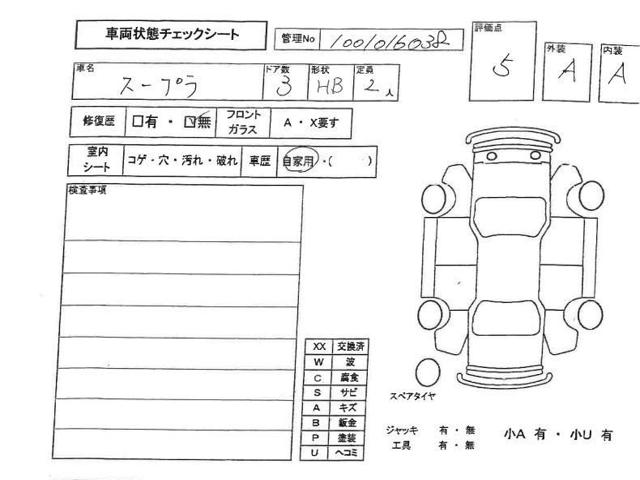 車両状態チェックシート
管理No 1001016038
評価点 5
外装 A
内装 A
車名 スープラ
ドア数 3
形状 HB
定員 2 人
修復歴 □有・☑無
フロントガラス A・X要す
室内シート コゲ・穴・汚れ・破れ
車歴 自家用・( )
検査事項
XX 交換済
W 波
C 腐食
S サビ
A キズ
B 鈑金
P 塗装
U ヘコミ
スペアタイヤ
ジャッキ 有・無
工具 有・無
小A 有・小U 有